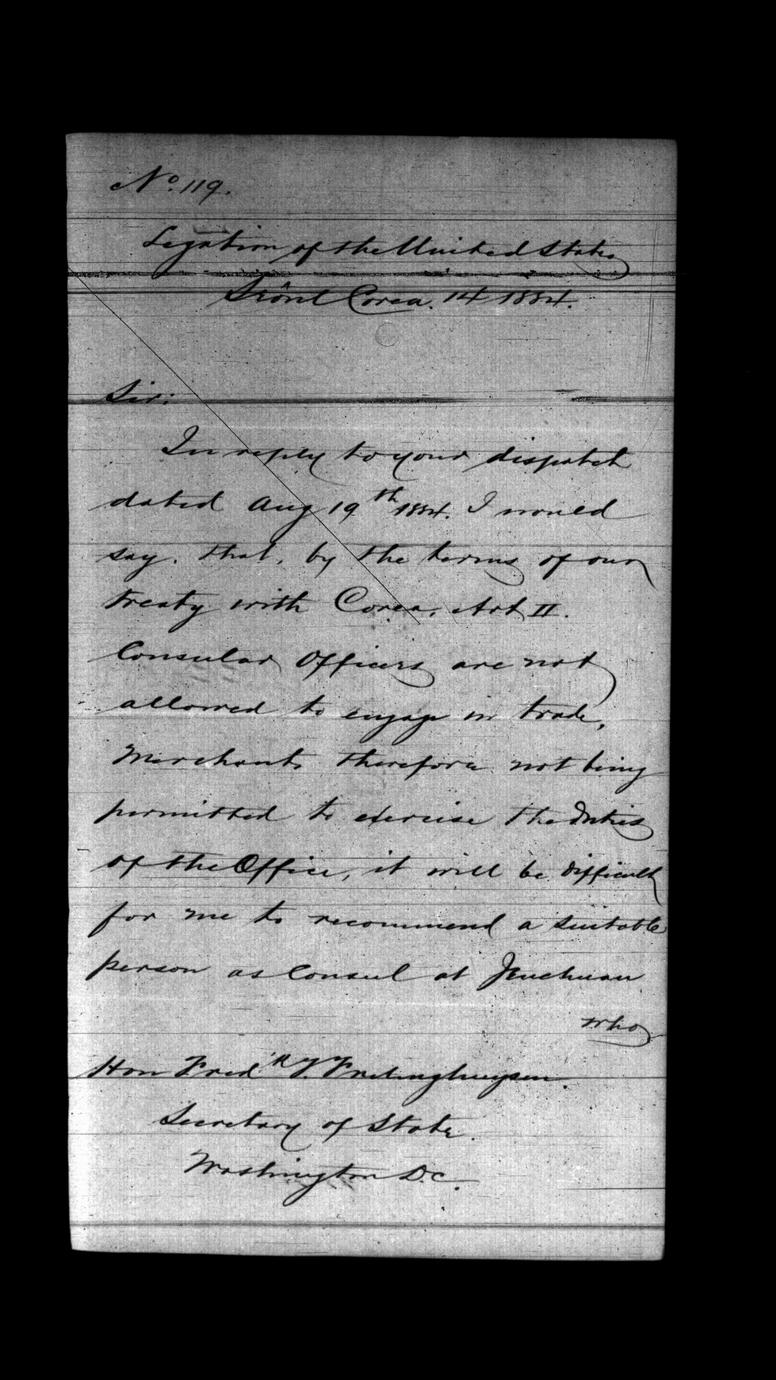 No. 119.
Legation of the United States
Sëoul Corea. 14 1884.
Sir:
In reply to your dispatch
dated Aug 19th 1884. I would
say. that, by the terms of our
treaty with Corea, Art II.
Consular Officers are not
allowed to engage in trade,
Merchants therefore not being
permitted to exercise the duties
of the Office, it will be difficult
for me to recommend a suitable
person as Consul at Jenchuan
who
Hon Fredk T. Frelinghuysen.
Secretary of State.
Washington D.C.